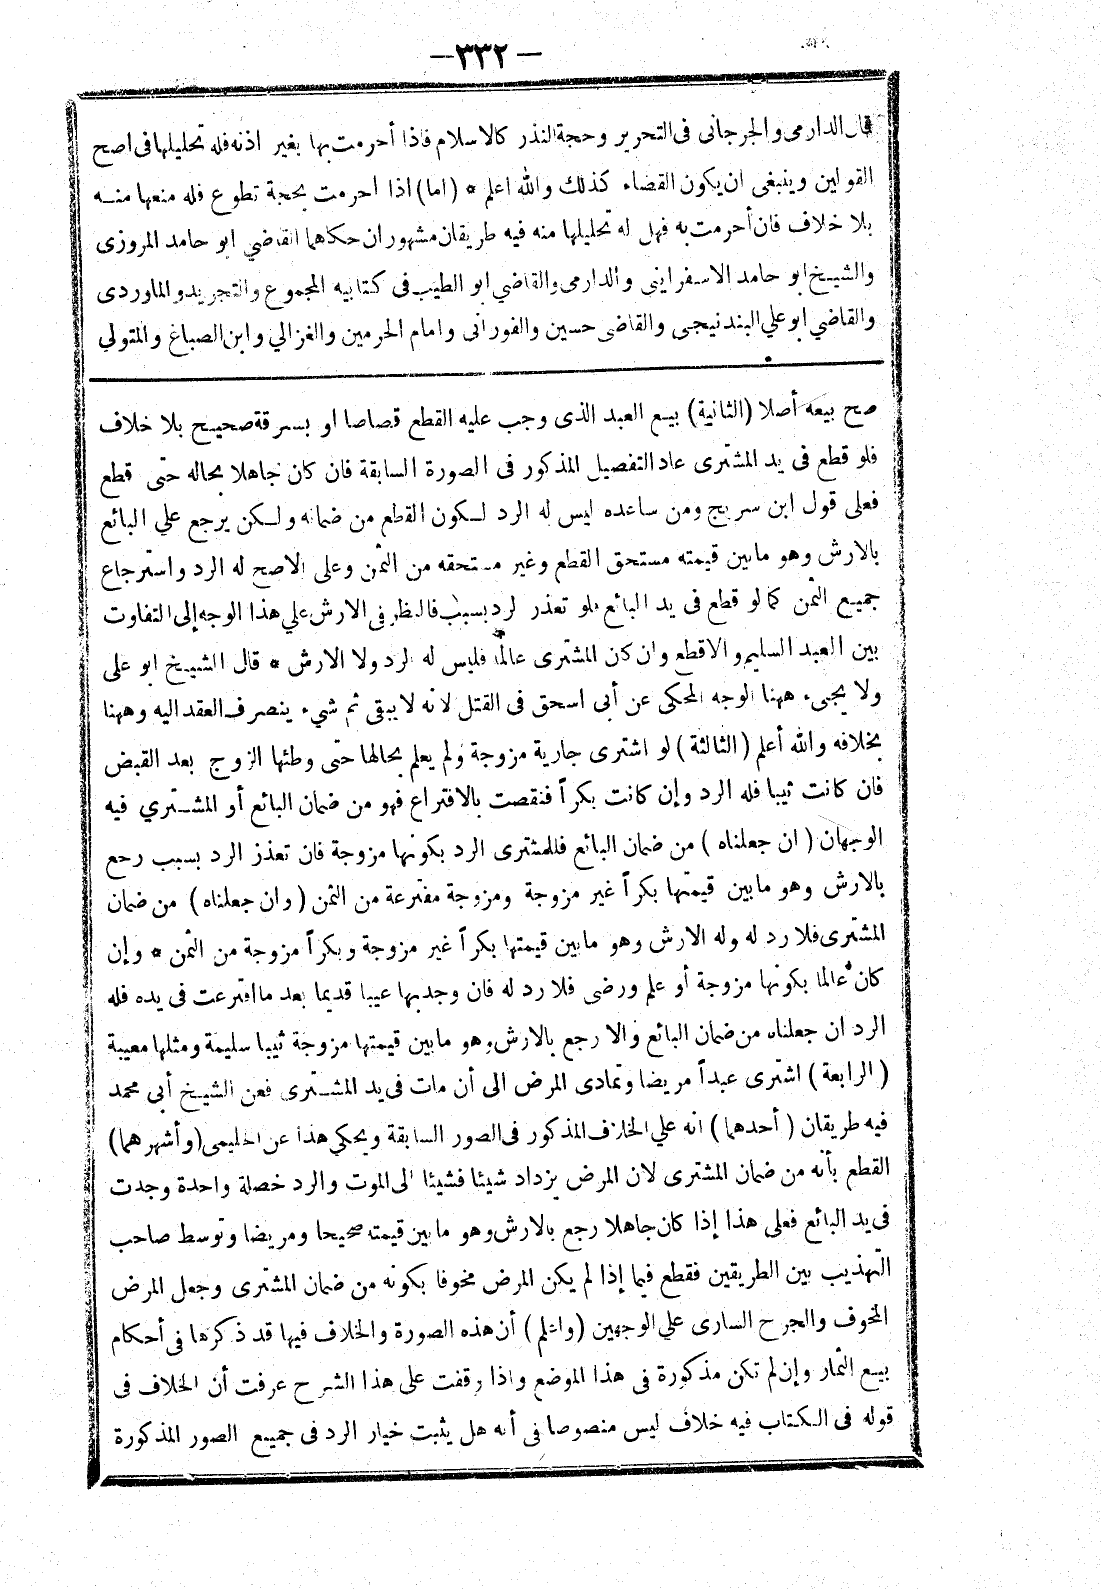 —٣٣٢—
قال الدارمى والجرجانى فى التحرير وحجة النذر كالاسلام فاذا أحرمت بها بغير اذنه فله تحليلها فى اصح
القولين وينبغى ان يكون القضاء كذلك والله اعلم * (اما) اذا احرمت بحجة تطوع فله منعها منه
بلا خلاف فان أحرمت به فهل له تحليلها منه فيه طريقان مشهوران حكاهما القاضي ابو حامد المروزى
والشيخ ابو حامد الاسفراينى والدارمى والقاضي ابو الطيب فى كتابيه المجموع والتجريد والماوردى
والقاضي ابو علي البندنيجى والقاضى حسين والفورانى وامام الحرمين والغزالي وابن الصباغ والمتولي
صح بيعه أصلا (الثانية) بيع العبد الذى وجب عليه القطع قصاصا او بسرقة صحيح بلا خلاف
فلو قطع فى يد المشترى عاد التفصيل المذكور فى الصورة السابقة فان كان جاهلا بحاله حتى قطع
فعلى قول ابن سريج ومن ساعده ليس له الرد لكون القطع من ضمانه ولكن يرجع علي البائع
بالارش وهو مابين قيمته مستحق القطع وغير مستحقه من الثمن وعلى الاصح له الرد واسترجاع
جميع الثمن كما لو قطع فى يد البائع فلو تعذر لرد بسبب فالنظر فى الارش علي هذا الوجه إلى التفاوت
بين العبد السليم والاقطع وان كن المشترى عالما فليس له الرد ولا الارش * قال الشيخ ابو على
ولا يجىء ههنا الوجه المحكى عن أبى اسحق فى القتل لانه لا يبقى ثم شيء ينصرف العقد اليه وههنا
بخلافه والله أعلم (الثالثة) لو اشترى جارية مزوجة ولم يعلم بحالها حتى وطئها الزوج بعد القبض
فان كانت ثيبا فله الرد وإن كانت بكراً فنقصت بالافتراع فهو من ضمان البائع أو المشتري فيه
الوجهان (ان جعلناه) من ضمان البائع فللمشترى الرد بكونها مزوجة فان تعذز الرد بسبب رجع
بالارش وهو مابين قيمتها بكراً غير مزوجة ومزوجة مفترعة من الثمن (وان جعلناه) من ضمان
المشترى فلا رد له وله الارش وهو مابين قيمتها بكراً غير مزوجة وبكراً مزوجة من الثمن * وإن
كان عالما بكونها مزوجة أو علم ورضى فلا رد له فان وجد بها عيبا قديما بعد ما افترعت فى يده فله
الرد ان جعلناه من ضمان البائع والا رجع بالارش وهو مابين قيمتها مزوجة ثيبا سليمة ومثلها معيبة
(الرابعة) اشترى عبداً مريضا وتمادى المرض الى أن مات فى يد المشترى فعن الشيخ أبى محمد
فيه طريقان (أحدهما) انه علي الخلاف المذكور فى الصور السابقة ويحكي هذا عن الحليمى (وأشهرهما)
القطع بأنه من ضمان المشترى لان المرض يزداد شيئا فشيئا الى الموت والرد خصلة واحدة وجدت
فى يد البائع فعلى هذا إذا كان جاهلا رجع بالارش وهو مابين قيمته صحيحا ومريضا وتوسط صاحب
التهذيب بين الطريقين فقطع فيما إذا لم يكن المرض مخوفا بكونه من ضمان المشترى وجعل المرض
المخوف والجرح السارى علي الوجهين (واعلم) أن هذه الصورة والخلاف فيها قد ذكرها فى أحكام
بيع الثمار وإن لم تكن مذكورة فى هذا الموضع واذا وقفت على هذا الشرح عرفت أن الخلاف فى
قوله فى الكتاب فيه خلاف ليس منصوصا فى أنه هل يثبت خيار الرد فى جميع الصور المذكورة